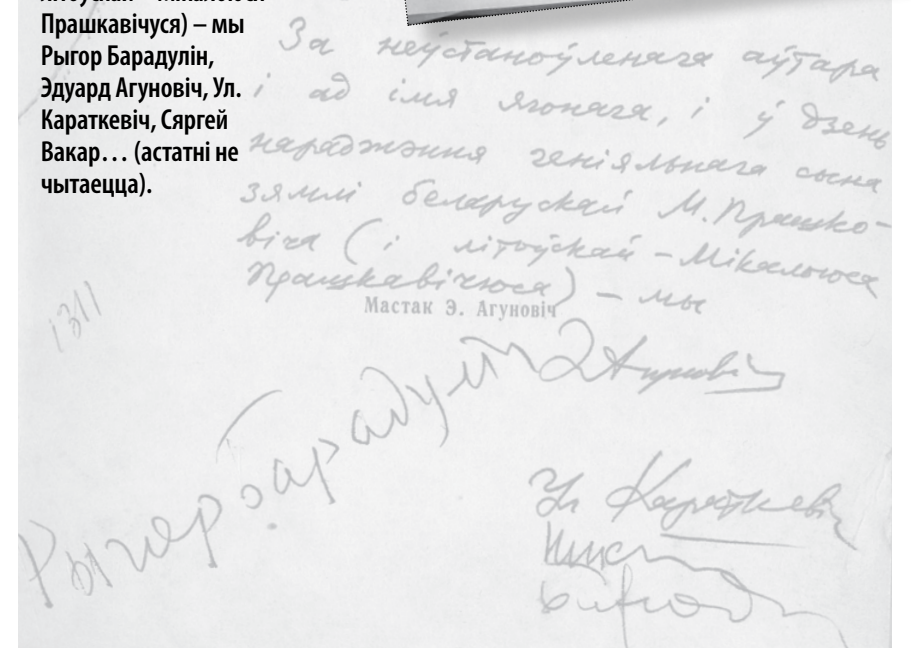 Прашкавічуся) – мы
Рыгор Барадулін,
Эдуард Агуновіч, Ул.
Караткевіч, Сяргей
Вакар… (астатні не
чытаецца).
За неўстаноўленага аўтара
і ад імя ягонага, і ў дзень
нараджэння геніяльнага сына
зямлі беларускай М. Прашко-
віча (і літоўскай – Мікалоюса
Прашкавічюса) – мы
Мастак Э. Агуновіч
1311
Рыгор Барадулін
Э Агуновіч
Ул Караткевіч